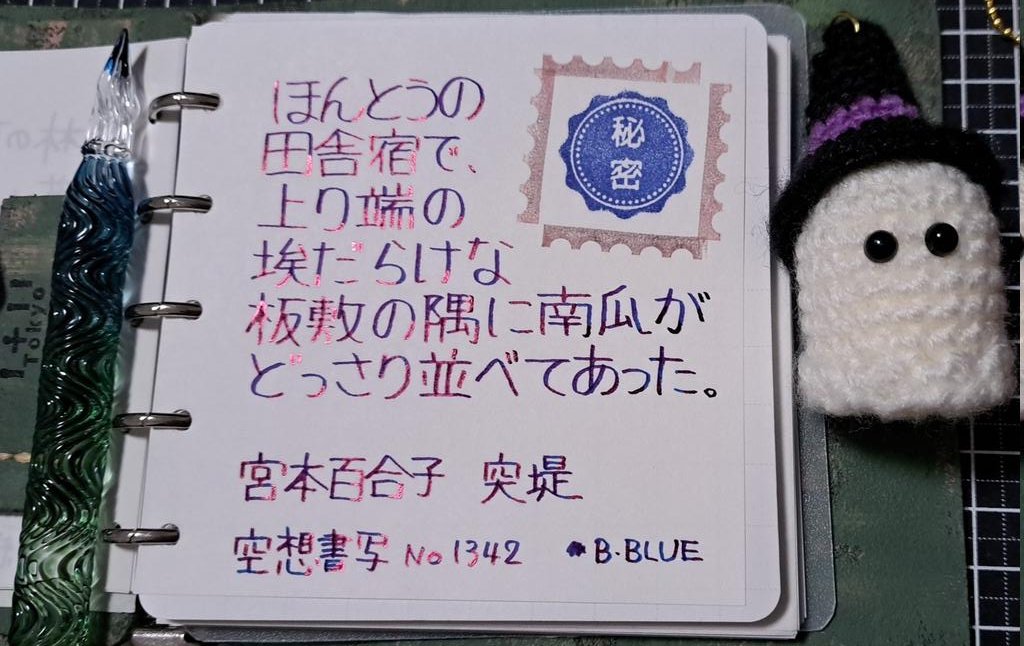 ほんとうの
田舎宿で、
上り端の
埃だらけな
板敷の隅に南瓜が
どっさり並べてあった。
宮本百合子 突堤
空想書写 No 1342 B.BLUE
秘密
Tokyo